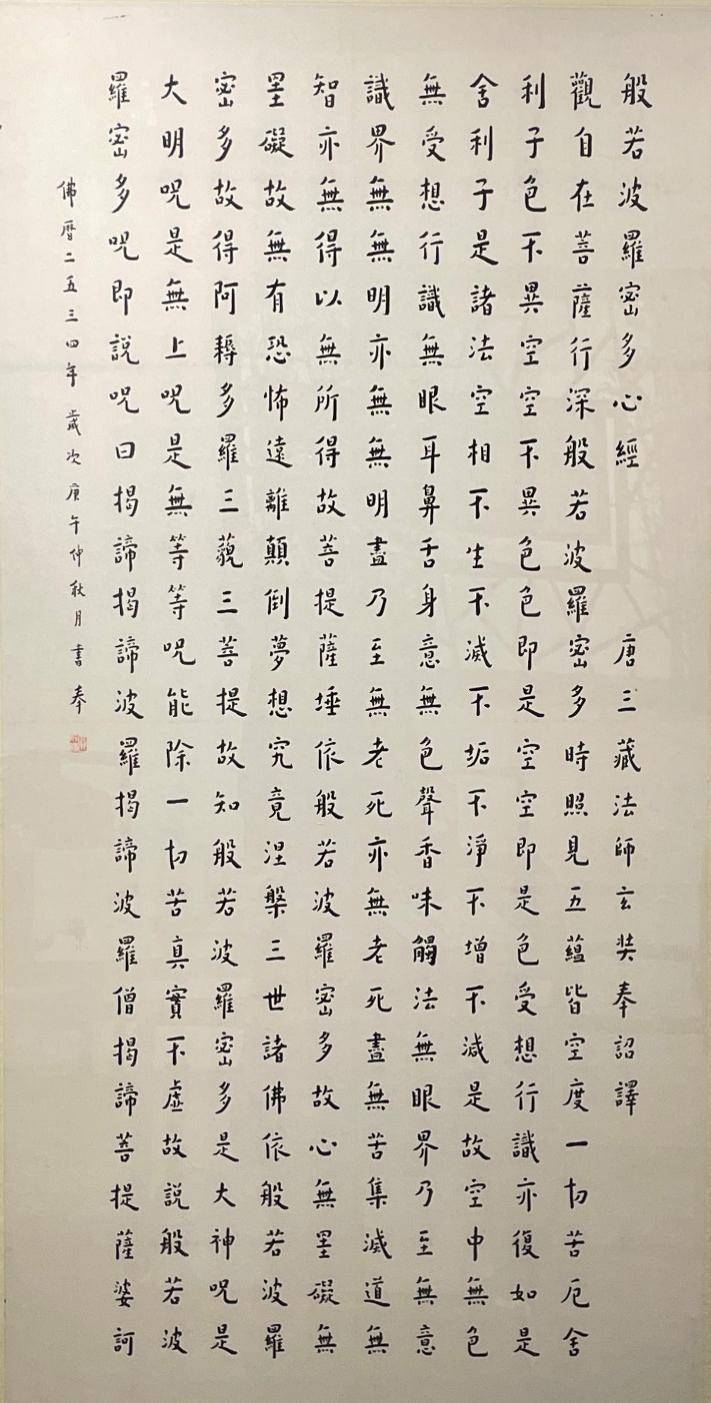 般若波羅密多心經 唐三藏法師玄奘奉詔譯
觀自在菩薩行深般若波羅密多時照見五蘊皆空度一切苦厄舍
利子色不異空空不異色色即是空空即是色受想行識亦復如是
舍利子是諸法空相不生不滅不垢不淨不增不減是故空中無色
無受想行識無眼耳鼻舌身意無色聲香味觸法無眼界乃至無意
識界無無明亦無無明盡乃至無老死亦無老死盡無苦集滅道無
智亦無得以無所得故菩提薩埵依般若波羅密多故心無罣礙無
罣礙故無有恐怖遠離顛倒夢想究竟涅槃三世諸佛依般若波羅
密多故得阿耨多羅三藐三菩提故知般若波羅密多是大神咒是
大明咒是無上咒是無等等咒能除一切苦真實不虛故說般若波
羅密多咒即說咒曰揭諦揭諦波羅揭諦波羅僧揭諦菩提薩婆訶
佛曆二五三四年 歲次庚午仲秋月書奉